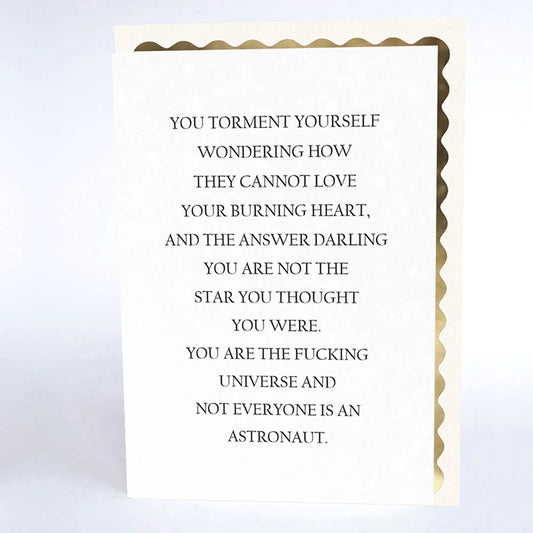 YOU TORMENT YOURSELF
WONDERING HOW
THEY CANNOT LOVE
YOUR BURNING HEART,
AND THE ANSWER DARLING
YOU ARE NOT THE
STAR YOU THOUGHT
YOU WERE.
YOU ARE THE FUCKING
UNIVERSE AND
NOT EVERYONE IS AN
ASTRONAUT.